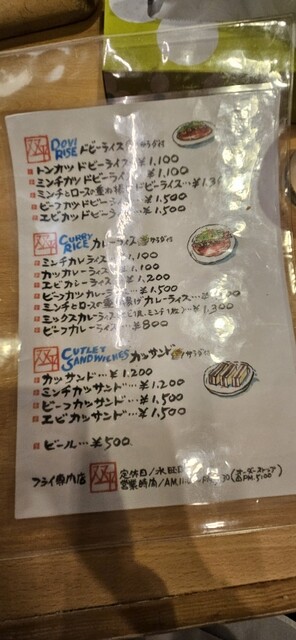 DOVI RISE ドビーライス サラダ付
トンカツドビーライス ¥1,100
ミンチカツドビーライス…¥1,100
ミンチとロースの重ね揚げドビーライス…¥1,3
ビーフカツドビー ¥1,500
エビカツドビーラ ¥1,500
CURRY RICE カレーライス サラダ付
ミンチカレーライス ,100
カツカレーライス ,100
エビカレーライス…¥1,200
ビーフカツカレーライス…¥1,500
ミンチとロースの重ね揚げカレーライス…
ミックスカレーライス ¥1,300
ビーフカレーライス…¥800
CUTLET SANDWICHES カツサンド サラダ付
カツサンド…¥1,200
ミンチカツサンド…¥1,200
ビーフカツサンド…¥1,500
エビカツサンド…¥1,500
ビール…¥500
フライ専門店 定休日/水曜日
営業時間/AM.11 30(オーダーストップ PM.5:00)